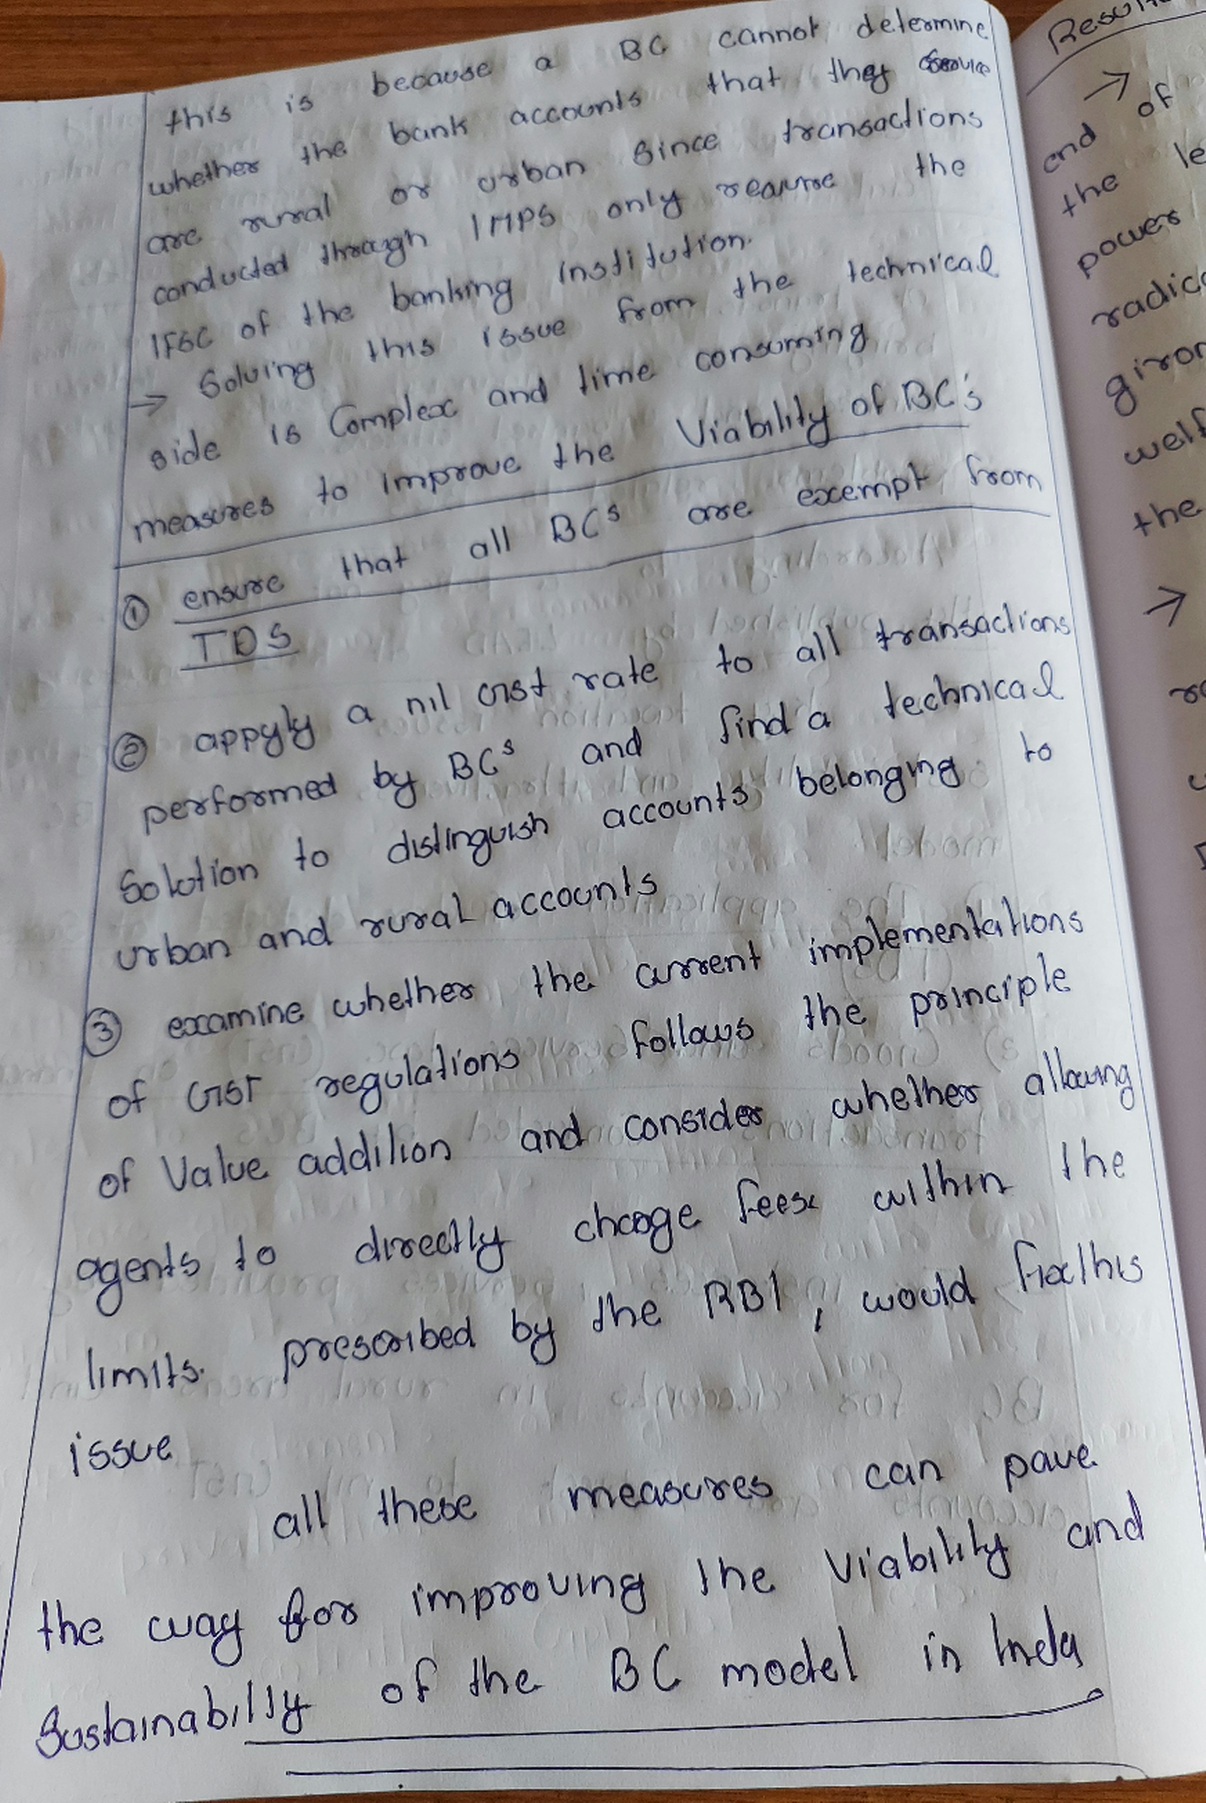 this is because a BC cannot determine
whether the bank accounts that they service
are rural or urban since transactions
conducted through IMPS only require the
IFSC of the banking institution.
→ Solving this issue from the technical
side is Complex and time consuming
measures to improve the Viability of BC's
① ensure that all BCs are exempt from
TDS
② appyly a nil GST rate to all transactions
performed by BCs and find a technical
Solution to distinguish accounts belonging to
urban and rural accounts
③ examine whether the current implementations
of GST regulations follows the principle
of Value addition and consider whether allowing
agents to directly charge fees within the
limits. prescribed by the RBI, would fix this
issue
all these measures can pave
the way for improving the Viability and
Sustainability of the BC model in India
→
end of
the le
power
radica
giron
welf
the
→